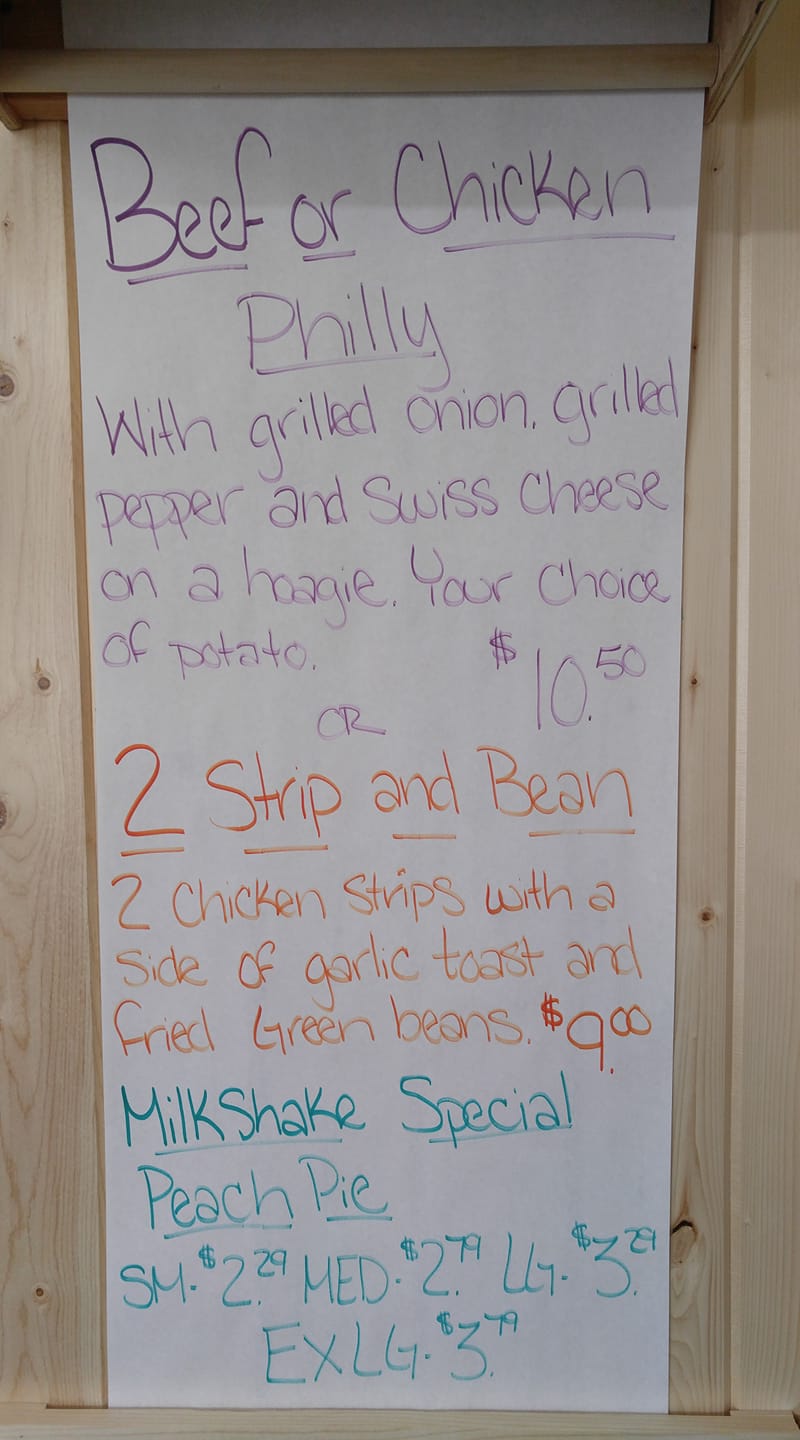 Beef or Chicken
Philly
With grilled onion, grilled
pepper and Swiss Cheese
on a hoagie. Your Choice
of potato. $10.50
OR
2 Strip and Bean
2 Chicken Strips with a
Side of garlic toast and
fried Green beans. $9.00
MilkShake Special
Peach Pie
SM. $2.29 MED. $2.79 LG. $3.29
EX LG. $3.79